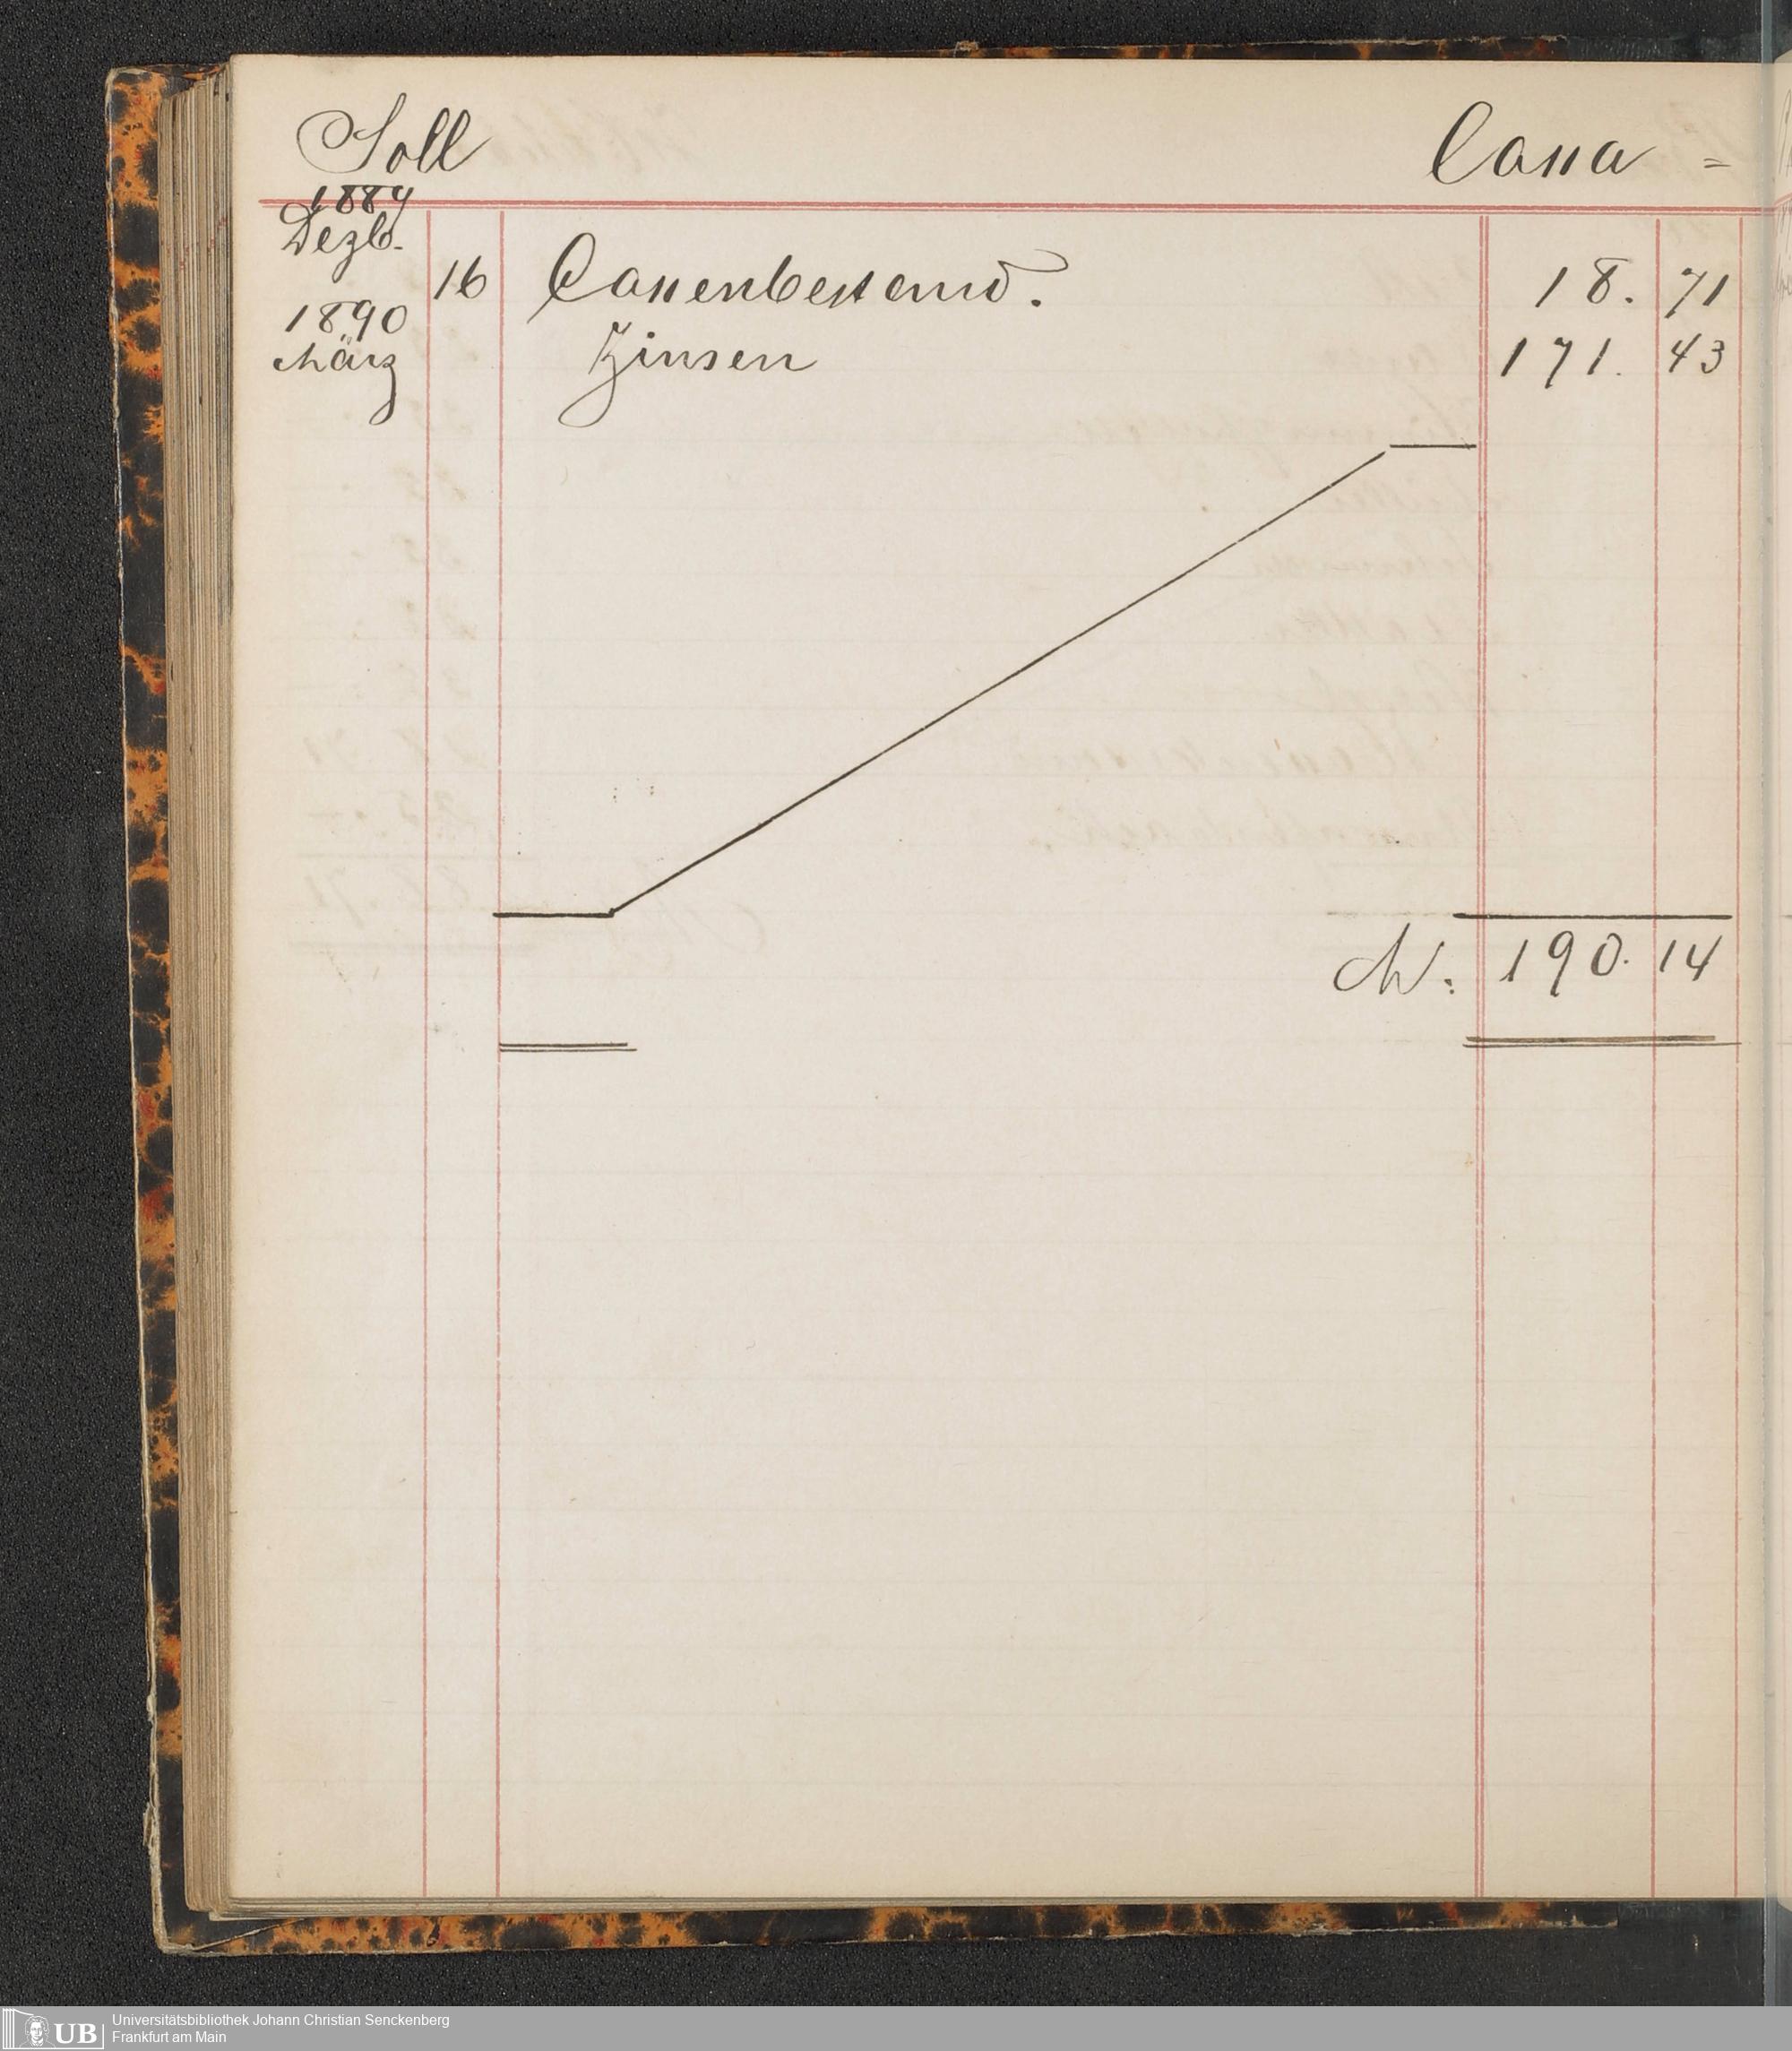 Soll Cassa =
1889
Dezb.
16 Cassenbestand. 18. 71
1890
März Zinsen 171. 43
M. 190. 14
UB Universitätsbibliothek Johann Christian Senckenberg
Frankfurt am Main